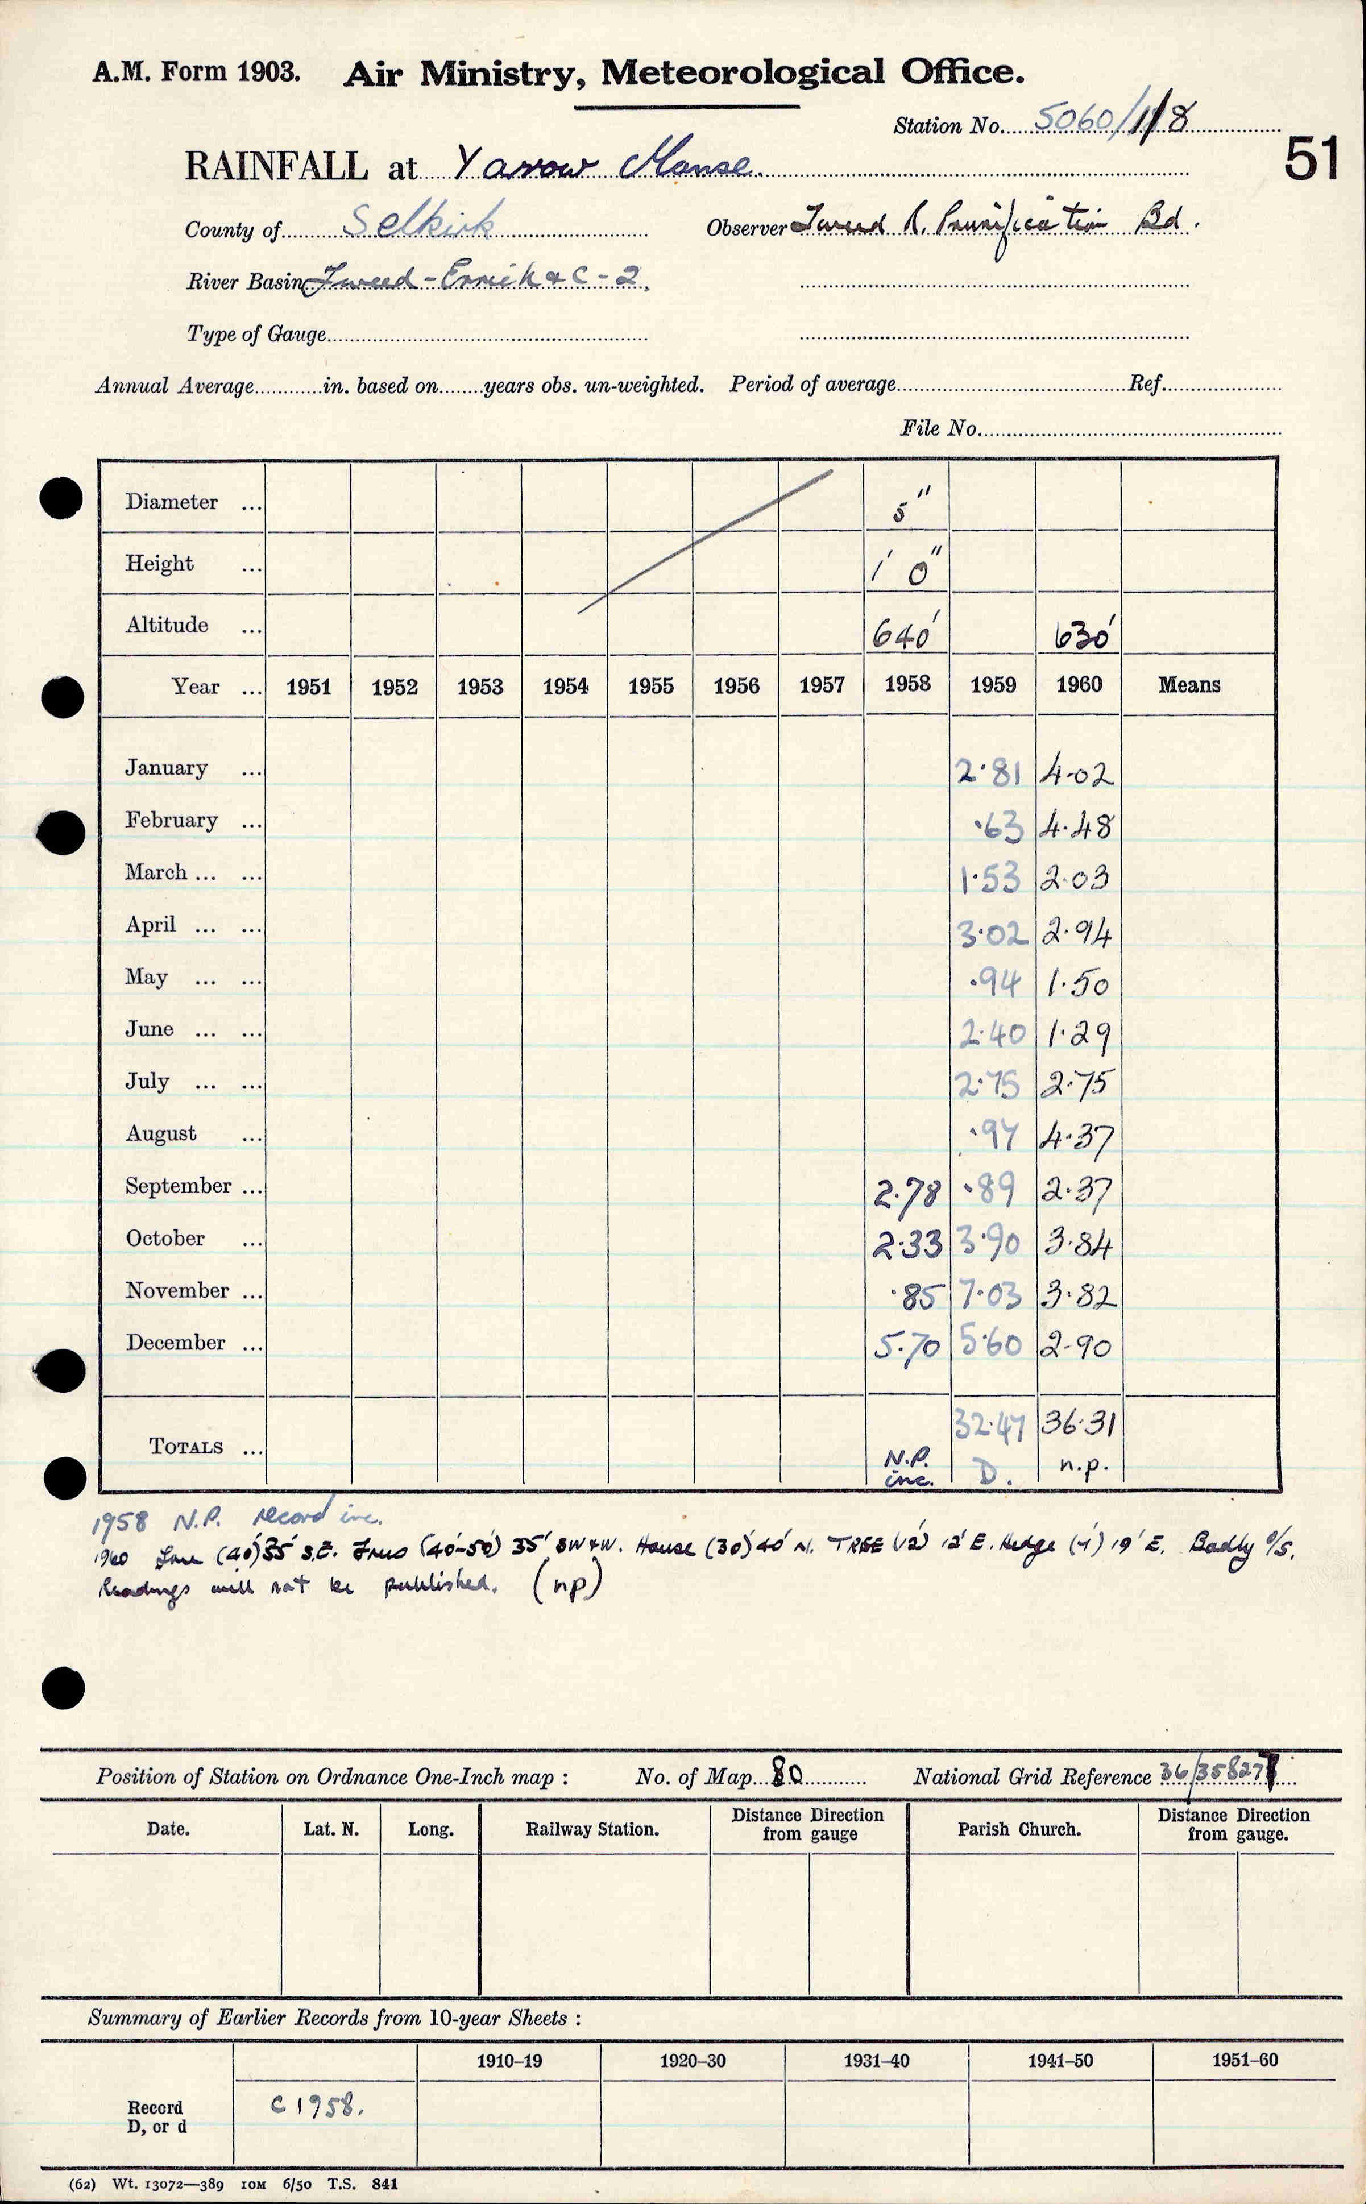 A.M. Form 1903. Air Ministry, Meteorological Office.
Station No. 5060/1/8
51
RAINFALL at Yarrow Manse.
County of Selkirk Observer Tweed R. Purification Bd.
River Basin Tweed - &c - 2.
Type of Gauge
Annual Average in. based on years obs. un-weighted. Period of average Ref.
File No.
Diameter ... 5"
Height ... 1' 0"
Altitude ... 640' 630'
Year ... 1951 1952 1953 1954 1955 1956 1957 1958 1959 1960 Means
January ... 2.81 4.02
February ... .63 4.48
March ... ... 1.53 2.03
April ... ... 3.02 2.94
May ... ... .94 1.50
June ... ... 2.40 1.29
July ... ... 2.75 2.75
August ... .97 4.37
September ... 2.78 .89 2.37
October ... 2.33 3.90 3.84
November ... .85 7.03 3.82
December ... 5.70 5.60 2.90
32.47 36.31
TOTALS ... N.P. inc. D. n.p.
1958 N.P. record inc.
1960 (40') 35' S.E. Trees (40'-50') 35' SW & W. House (30') 40' N. TREE (12') 12' E. Hedge (4') 19' E. Badly o/s.
Readings will not be published. (np)
Position of Station on Ordnance One-Inch map : No. of Map 80 National Grid Reference 36/358277
Date. Lat. N. Long. Railway Station. Distance Direction from gauge Parish Church. Distance Direction from gauge.
Summary of Earlier Records from 10-year Sheets :
1910-19 1920-30 1931-40 1941-50 1951-60
Record
D, or d
C 1958.
(62) Wt. 13072—389 10M 6/50 T.S. 841